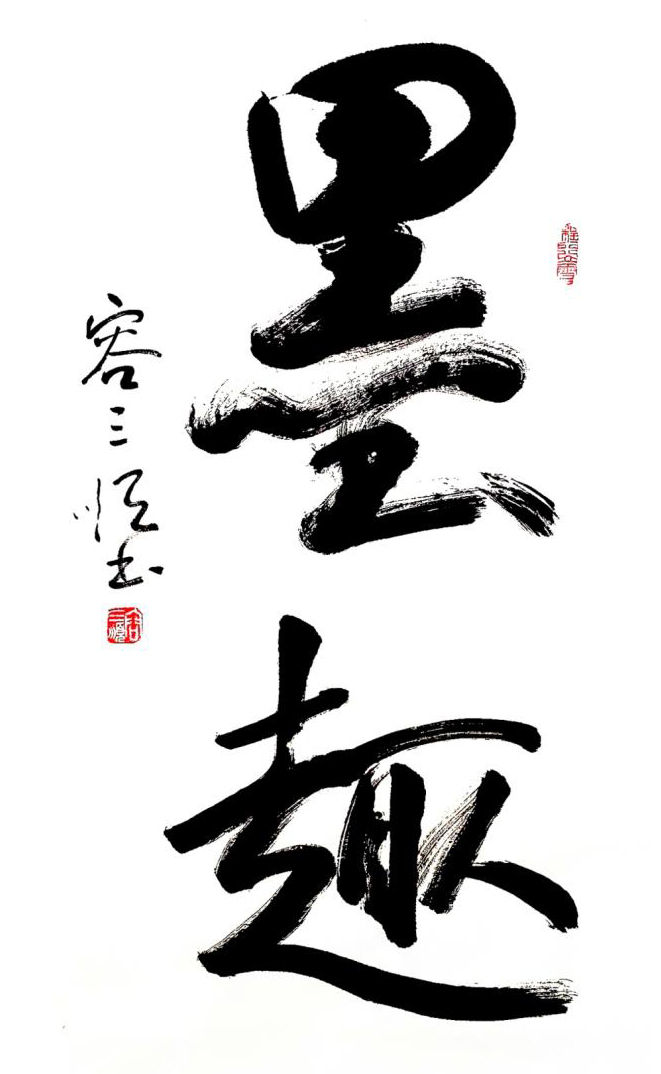 墨趣
容三书